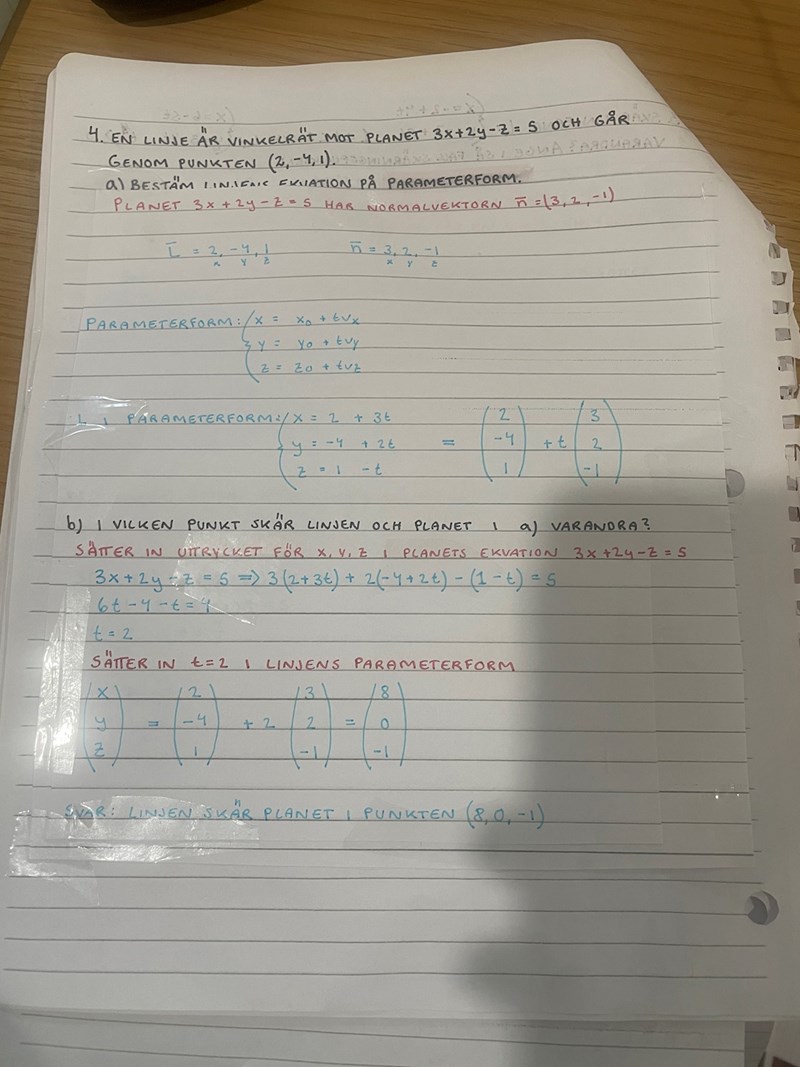 4. EN LINJE ÄR VINKELRÄT MOT PLANET 3x+2y-z=5 OCH GÅR
GENOM PUNKTEN (2,-4,1).
a) BESTÄM LINJENS EKVATION PÅ PARAMETERFORM.
PLANET 3x+2y-z=5 HAR NORMALVEKTORN n̄=(3,2,-1)
L̄ = 2,-4,1 n̄ = 3,2,-1
x y z x y z
PARAMETERFORM: { x = x₀ + tvₓ
y = y₀ + tvᵧ
z = z₀ + tv_z
L I PARAMETERFORM: { x = 2 + 3t
y = -4 + 2t = (2 -4 1) + t (3 2 -1)
z = 1 - t
b) I VILKEN PUNKT SKÄR LINJEN OCH PLANET I a) VARANDRA?
SÄTTER IN UTTRYCKET FÖR X, Y, Z I PLANETS EKVATION 3x+2y-z=5
3x+2y-z=5 => 3(2+3t)+2(-4+2t)-(1-t)=5
6t-4-t=4
t=2
SÄTTER IN t=2 I LINJENS PARAMETERFORM
(x y z) = (2 -4 1) + 2 (3 2 -1) = (8 0 -1)
SVAR: LINJEN SKÄR PLANET I PUNKTEN (8,0,-1)